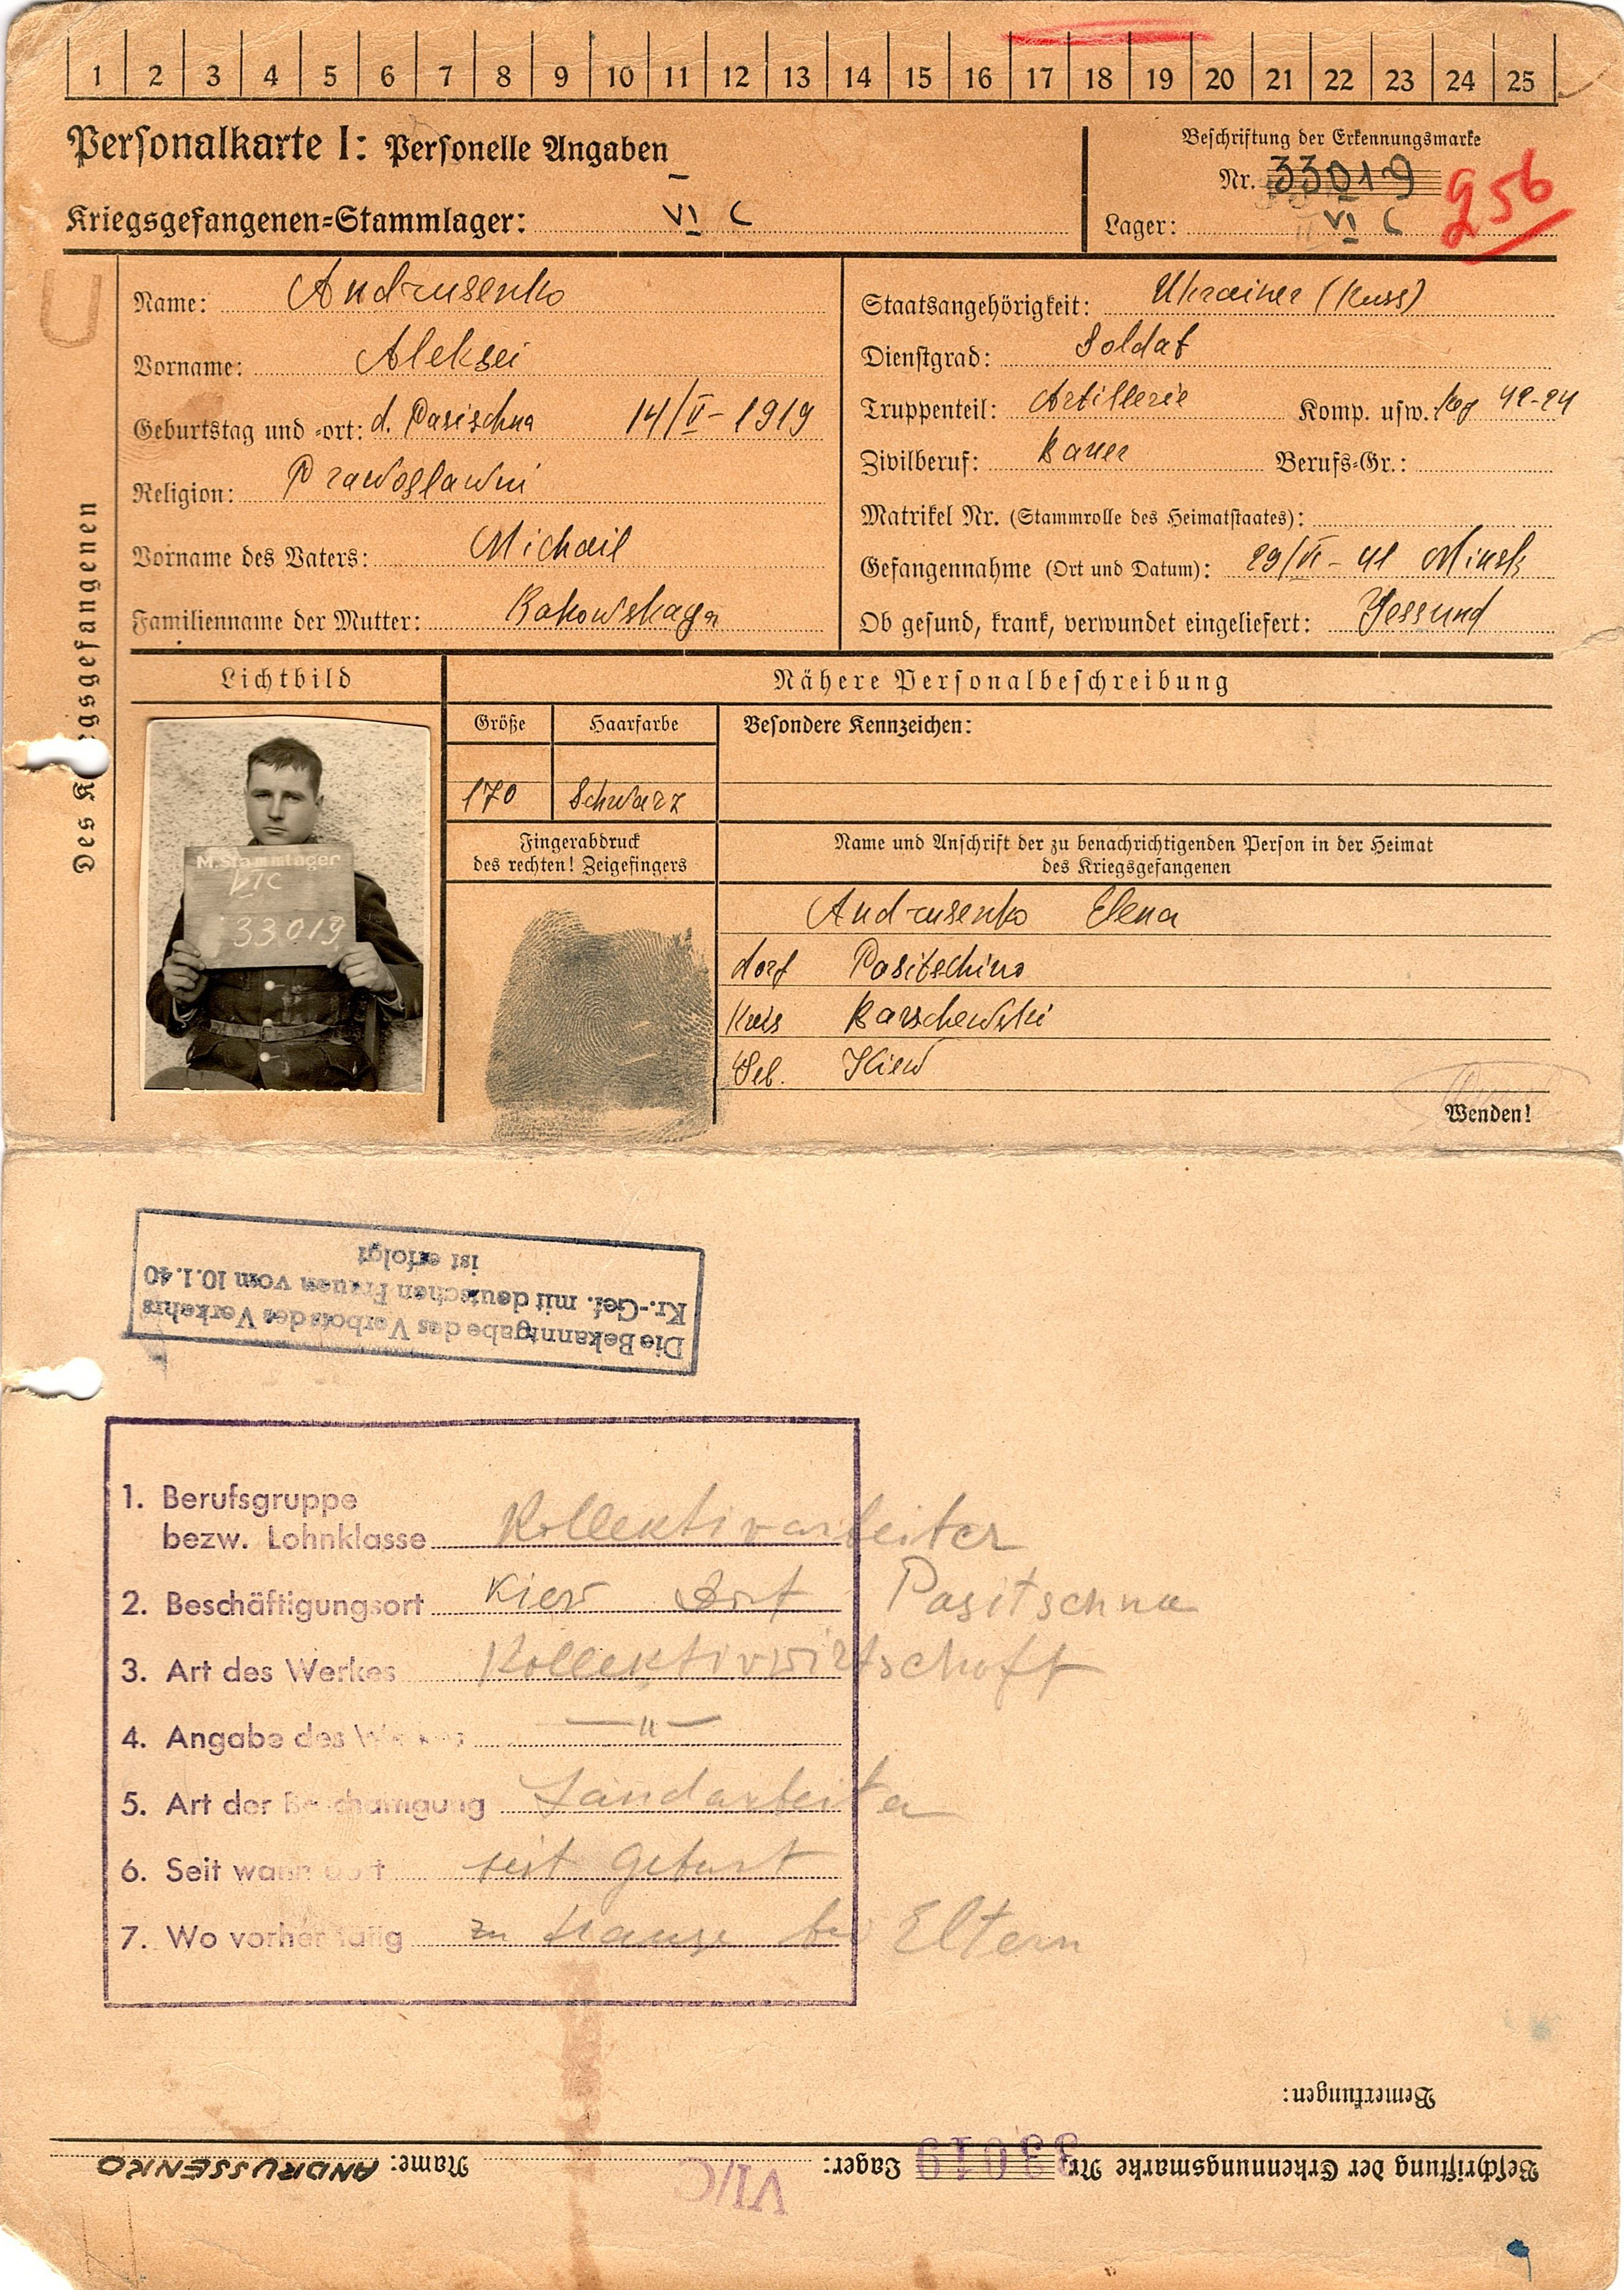 1 2 3 4 5 6 7 8 9 10 11 12 13 14 15 16 17 18 19 20 21 22 23 24 25
Personalkarte I: Personelle Angaben
Kriegsgefangenen-Stammlager: VI C
Beschriftung der Erkennungsmarke
Nr. 33019
Lager: VI C
956
Des Kriegsgefangenen
Name: Andrusenko
Vorname: Aleksei
Geburtstag und -ort: d. Pasischna 14/V-1919
Religion: Prawoslawni
Vorname des Vaters: Michail
Familienname der Mutter: Bakowskaya
Staatsangehörigkeit: Ukrainer (Russ)
Dienstgrad: Soldat
Truppenteil: Artillerie Komp. usw.: Reg 42-24
Zivilberuf: Bauer Berufs-Gr.:
Matrikel Nr. (Stammrolle des Heimatstaates):
Gefangennahme (Ort und Datum): 29/VI-41 Minsk
Ob gesund, krank, verwundet eingeliefert: Gessund
Lichtbild
M.Stammlager
VIC
33019
Nähere Personalbeschreibung
Größe Haarfarbe Besondere Kennzeichen:
170 Schwarz
Fingerabdruck
des rechten! Zeigefingers
Name und Anschrift der zu benachrichtigenden Person in der Heimat
des Kriegsgefangenen
Andrusenko Elena
dorf Pasitschino
Kreis Barschewski
Geb. Kiew
Wenden!
Die Bekanntgabe des Verbots des Verkehrs
Kr.-Gef. mit deutschen Frauen vom 10.1.40
ist erfolgt
1. Berufsgruppe
bezw. Lohnklasse Kollektivarbeiter
2. Beschäftigungsort Kiew Dorf Pasitschna
3. Art des Werkes Kollektivwirtschaft
4. Angabe des Werkes —"—
5. Art der Beschäftigung Landarbeiter
6. Seit wann dort seit Geburt
7. Wo vorher tätig zu Hause bei Eltern
Bemerkungen:
Beschriftung der Erkennungsmarke Nr. 33019 Lager: VI/C Name: ANDRUSSENKO